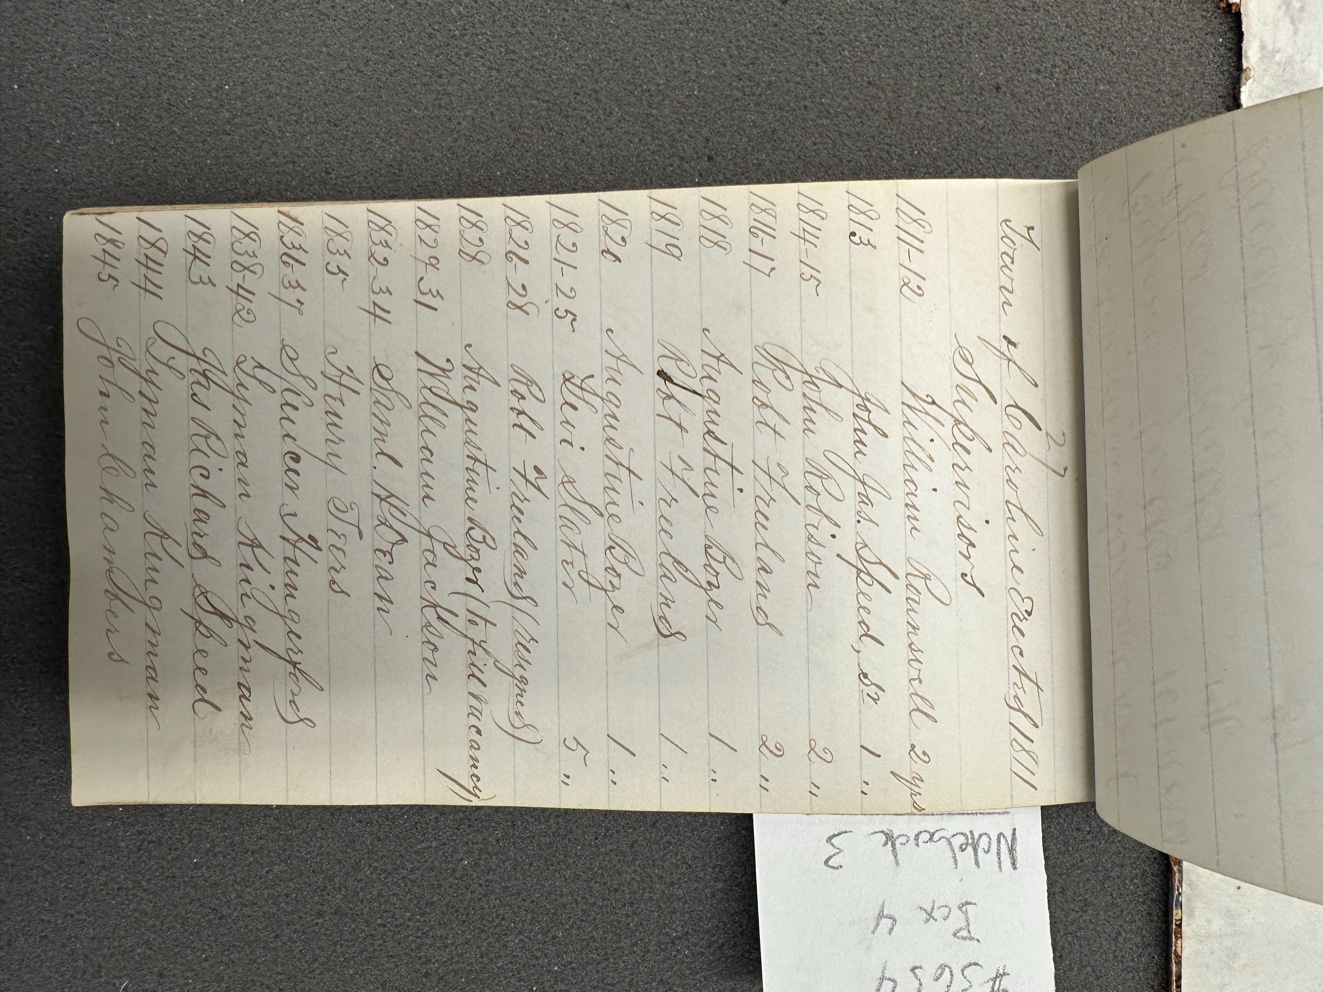 27
Town of Caroline Erected 1811
Supervisors
1811-12 William Rounsvell 2 yrs
1813 John Jas. Speed, Sr 1 "
1814-15 John Robison 2 "
1816-17 Robt Freeland 2 "
1818 Augustine Boyer 1 "
1819 Robt Freeland 1 "
1820 Augustine Boyer 1 "
1821-25 Levi Slater 5 "
1826-28 Robt Freeland (resigned)
1828 Augustine Boyer (to fill vacancy)
1829-31 William Jackson
1832-34 Saml. H Dean
1835 Henry Teers
1836-37 Spencer Hungerford
1838-42 Lyman Kingman
1843 Jhs Richard Speed
1844 Lyman Kingman
1845 John Chambers
Notebook 3
Box 4
#3654